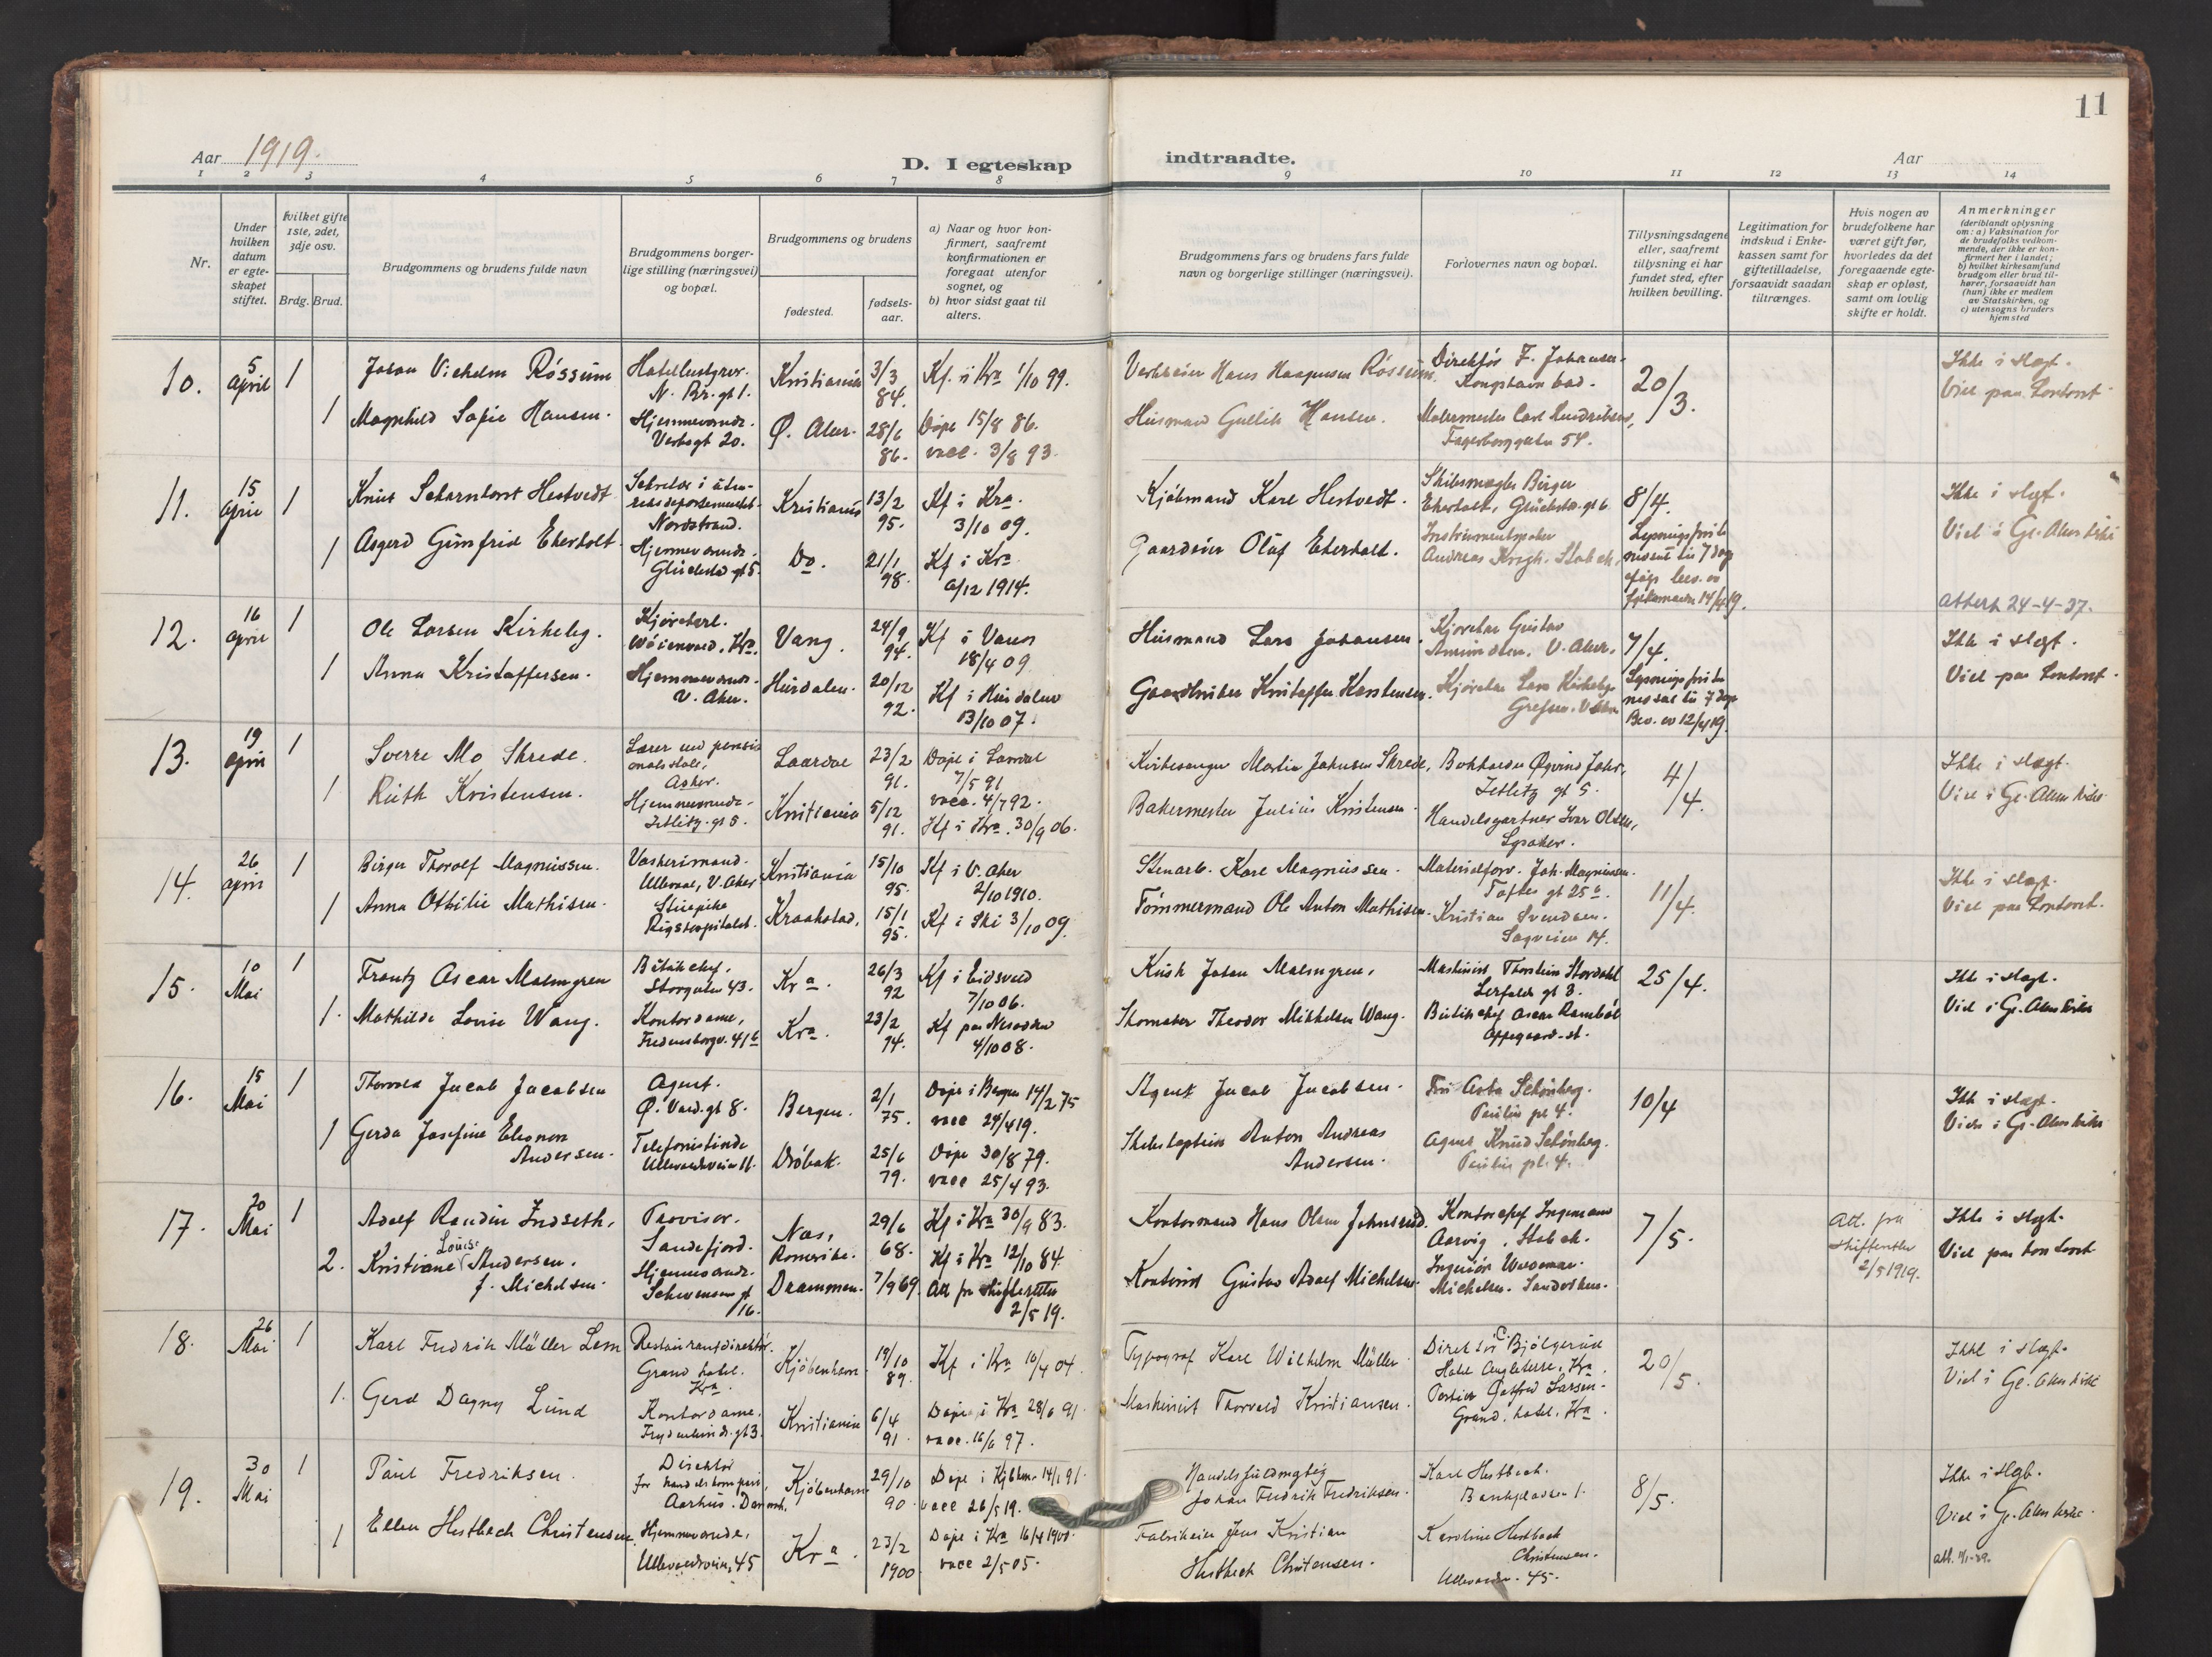 11
Aar 1919.
D. I egteskap
indtraadte.
Aar
1 2 3 4 5 6 7 8 9 10 11 12 13 14
Nr.
Under hvilken datum er egte-skapet stiftet.
Hvilket gifte 1ste, 2det, 3dje osv.
Brdg. Brud.
Brudgommens og brudens fulde navn
Brudgommens borger-lige stilling (næringsvei) og bopæl.
Brudgommens og brudens
fødested.
fødsels-aar.
a) Naar og hvor kon-firmert, saafremt konfirmationen er foregaat utenfor sognet, og
b) hvor sidst gaat til alters.
Brudgommens fars og brudens fars fulde navn og borgerlige stillinger (næringsvei).
Forlovernes navn og bopæl.
Tillysningsdagene eller, saafremt tillysning ei har fundet sted, efter hvilken bevilling.
Legitimation for indskud i Enke-kassen samt for giftetilladelse, forsaavidt saadan tiltrænges.
Hvis nogen av brudefolkene har været gift før, hvorledes da det foregaaende egte-skap er opløst, samt om lovlig skifte er holdt.
Anmerkninger (deriblandt oplysning om: a) Vaksination for de brudefolks vedkom-mende, der ikke er kon-firmert her i landet; b) hvilket kirkesamfund brudgom eller brud til-hører, forsaavidt han (hun) ikke er medlem av Statskirken, og c) utensogns bruders hjemsted
10. 5 April 1
Johan Vilhelm Røssum
N. Br. gt 1.
Kristiania 3/3 84.
Kf. i Kra 1/10 99.
Hans Haagensen Røssum.
Direktør F. Johansen
Kongshavn bad.
20/3.
Ikke i slegt.
Viet paa kontoret
1 Magnhild Sofie Hansen.
Hjemmeværende.
Verksgt 20.
Ø. Aker. 28/6 86.
Døpt 15/8 86.
vacc. 3/8 93.
Husmand Gullik Hansen.
Malermester Carl
Fagerborggaten 54.
11. 15 April 1
Knut Scharnhorst Hestvedt
Nordstrand.
Kristiania 13/2 95.
Kf i Kra. 3/10 09.
Kjøbmand Karl Hestvedt.
Skibsmægler Birger
Ekerholt, Glückstad. gt 6
8/4.
Ikke i slegt.
Viet i Gl. Aker kirke
1 Asgerd Gunfrid Ekerholt.
Hjemmeværende.
Glückstad gt 5.
Do. 21/1 98.
Kf i Kra 6/12 1914.
Gaardeier Oluf Ekerholt.
Andreas Krogh. Stabek.
14/4 19.
Attest 24-4-37.
12. 16 April 1
Ole Larsen Kirkeby.
Kjørekarl.
Vang. 24/9 94.
Kf i Vang 18/4 09
Husmand Lars Johansen.
Kjørekar Gustav
V. Aker.
7/4.
Ikke i slegt.
Viet paa kontoret.
1 Anna Kristoffersen.
Hjemmeværende.
V. Aker.
Hurdalen. 20/12 92.
Kf i Hurdalen 13/10 07.
Gaardbruker Kristoffer Karstensen.
Kjørekar Lars Kirkeby
Grefsen. V. Aker
Bev. av 12/4 19.
13. 19 April 1
Sverre Mo Skrede.
Asker.
Laardal 23/2 91.
Døpt i Laardal 7/5 91
vacc. 4/7 92.
Kirkesanger Martin Johnsen Skrede,
Bokholder Øyvind Jahr,
Zetlitz gt 5.
4/4.
Ikke i slegt.
Viet i Gl. Aker kirke
1 Ruth Kristensen.
Hjemmeværende.
Zetlitz. gt 5.
Kristiania 5/12 91.
Kf i Kra. 30/9 06.
Bakermester Julius Kristensen.
Handelsgartner Ivar Olsen,
Lysaker.
14. 26 April 1
Birger Thorolf Magnussen.
Vaskerimand.
Ullevaal, V. Aker
Kristiania 15/10 95.
Kf i V. Aker 2/10 1910.
Stenarb. Karl Magnussen.
Materialforv. Joh. Magnussen.
Toftes gt 25b.
11/4.
Ikke i slegt.
Viet paa kontoret.
1 Anna Othilie Mathisen.
Stuepike
Rigshospitalet.
Kraakstad, 15/1 95.
Kf i Ski 3/10 09.
Tømmermand Ole Anton Mathisen.
Kristian Svendsen.
Sagveien 14.
15. 10 Mai 1
Frantz Oscar Malmgren
Butikchef.
Storgaten 43.
Kra. 26/3 92
Kf i Eidsvold 7/10 06.
Kusk Johan Malmgren.
Maskinist Thorstein Stordahl
25/4.
Ikke i slegt.
Viet i Gl. Aker kirke
1. Mathilde Lovise Wang.
Kontordame,
Fredensborgv. 41b
Kra. 23/2 94.
Kf paa Nesodden 4/10 08.
Skomaker Theodor Mikkelsen Wang.
Butikchef Oscar Rambøl
Oppegaard st.
16. 15 Mai 1
Thorvald Jacob Jacobsen
Agent.
Ø. Vard. gt 8.
Bergen. 2/1 75.
Døpt i Bergen 14/2 75
vacc 24/4 19.
Agent Jacob Jacobsen.
Fru Schønberg.
Paulus pl 4.
10/4
Ikke i slegt.
Viet i Gl. Aker kirke
1 Gerda Josefine Eleonora
Andersen.
Telefonistinde
Ullevaalsveien 11.
Drøbak. 25/6 79.
Døpt 30/8 79.
vacc 25/4 93.
Skibskaptein Anton Andreas
Andersen.
Agent Knud Schønberg.
Paulus pl. 4.
17. 20 Mai 1
Adolf Randin Indseth.
Provisor.
Sandefjord.
Nes, Romerike. 29/6 68.
Kf i Kra 30/9 83.
Kontormand Hans Olsen Johnsrud.
Kontorchef Ingemann
Aarvig. Stabek.
7/5.
Att. fra skifteretten 2/5 1919.
Ikke i slegt.
Viet paa kontoret
2. Kristiane Louise Andersen.
f. Michelsen.
Hjemmeværende.
Schwensens gt 16.
Drammen. 7/9 69.
Kf i Kra 12/10 84.
Att fra skifteretten 2/5 19.
Kontorist Gustav Adolf Michelsen.
Ingeniør
Michelsen. Sandviken.
18. 26 Mai 1
Karl Fredrik Müller Lem
Restaurantdirektør.
Grand hotel.
Kra.
Kjøbenhavn 19/10 89.
Kf i Kra 10/4 04.
Typograf Karl Wilhelm Müller
Direktør C. Bjølgerud
Hotel Angleterre, Kra.
20/5.
Ikke i slegt.
Viet i Gl. Aker kirke
1. Gerd Dagny Lund
Kontordame,
Frydenlunds. gt 3.
Kristiania 6/4 91.
Døpt i Kra 28/6 91
vacc. 16/6 97.
Maskinist Thorvald Kristiansen.
Portier Gotfred Larsen.
Grand. hotel, Kra.
19. 30 Mai 1
Paul Fredriksen.
Direktør
for handelskompani,
Aarhus. Danmark.
Kjøbenhavn 29/10 90.
Døpt i Kjbhvn 14/1 91.
vacc 26/5 19.
Handelsfuldmægtig
Johan Fredrik Fredriksen.
Karl Hestbech.
Bankpladsen 1.
8/5.
Ikke i slegt.
Viet i Gl. Aker kirke.
1 Ellen Hestbech Christensen.
Hjemmeværende,
Ullevaalsveien, 45
Kra. 23/2 1900
Døpt i Kra 16/4 1900.
vacc 2/5 05.
Fabrikeier Jens Kristian
Hestbech Christensen.
Karoline Hestbech
Christensen.
Ullevaalsv. 45.